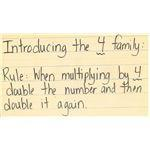 Introducing the 4 family:
Rule: When multiplying by 4
double the number and then
double it again.